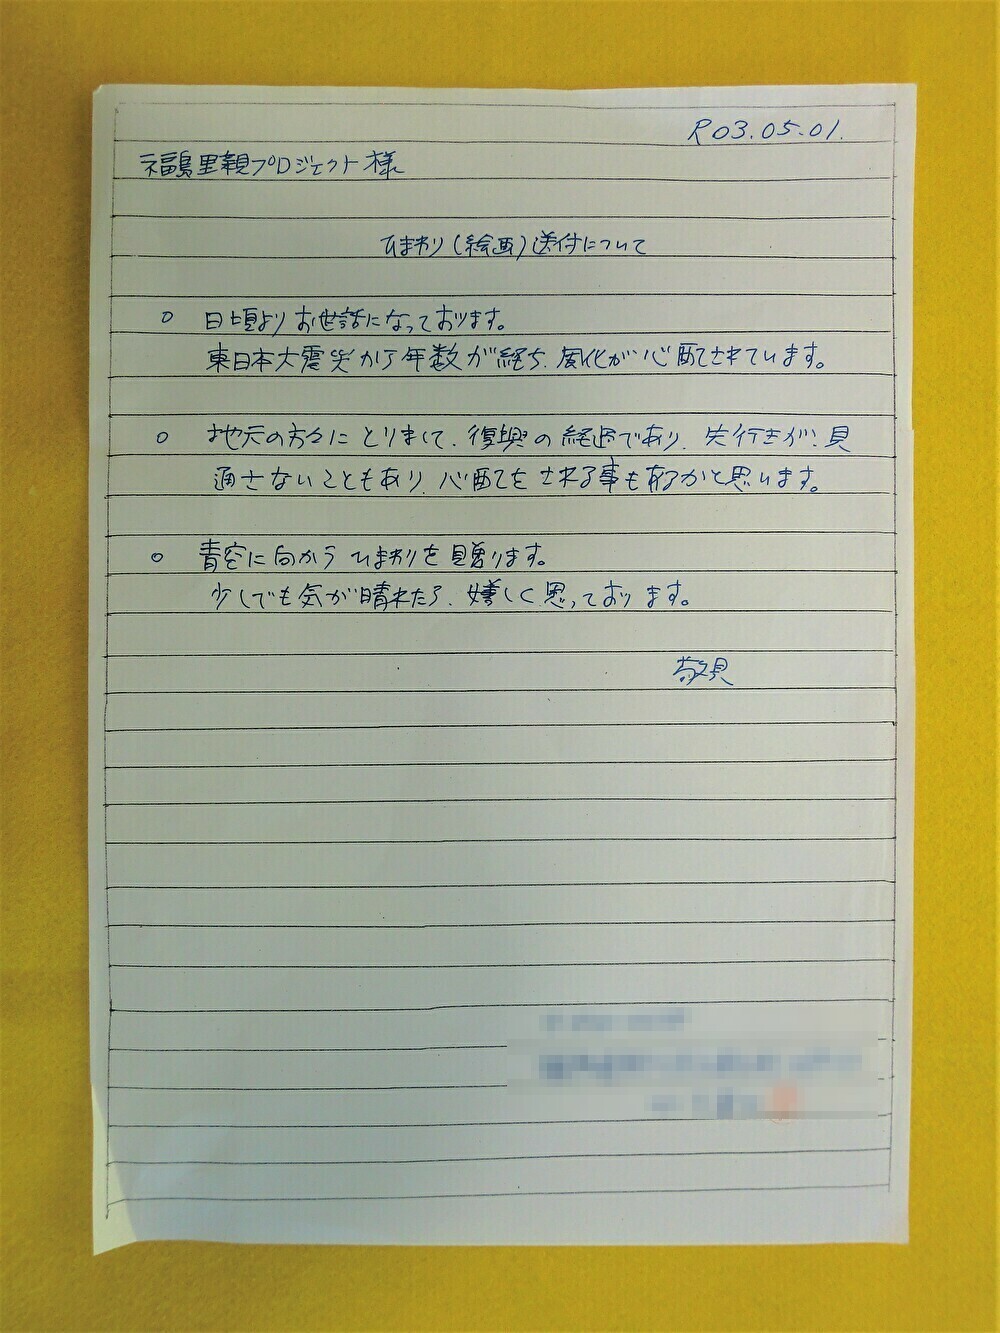 R03.05.01.
福島里親プロジェクト様
ひまわり(絵画)送付について
○ 日頃よりお世話になっております。
東日本大震災から年数が経ち、風化が心配されています。
○ 地元の方々にとりまして、復興の経過であり、先行きが、見
通さないこともあり、心配を される事も有るかと思います。
○ 青空に向かうひまわりを贈ります。
少しでも気が晴れたら、嬉しく思っております。
敬具